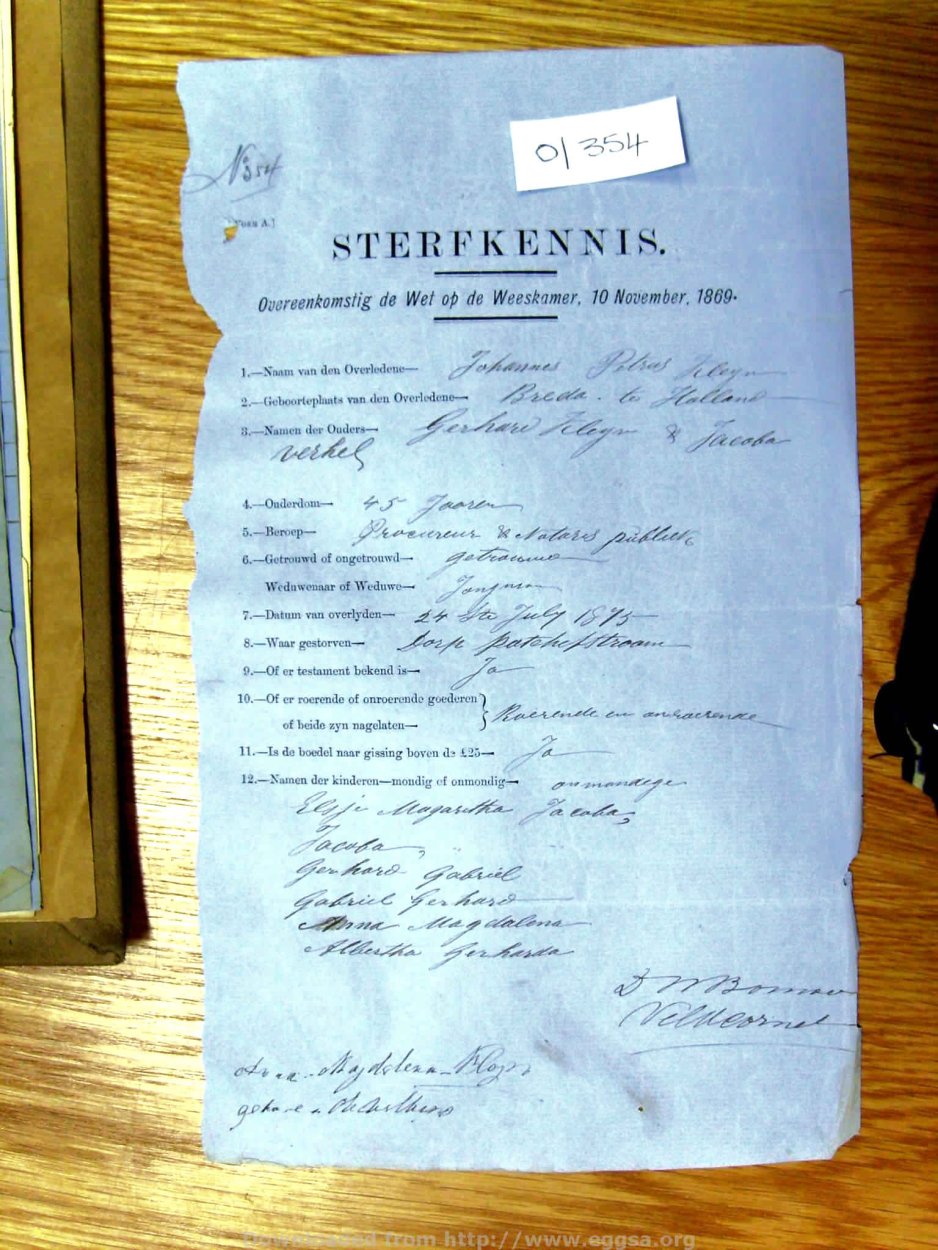 01 354
No 354
[Form A.]
STERFKENNIS.
Overeenkomstig de Wet op de Weeskamer, 10 November, 1869.
1.—Naam van den Overledene— Johannes Petrus Kleyn
2.—Geboorteplaats van den Overledene— Breda. te Holland
3.—Namen der Ouders— Gerhard Kleyn & Jacoba
verhel
4.—Ouderdom— 45 Jaaren
5.—Beroep— Procureur & Notaris publiek
6.—Getrouwd of ongetrouwd— getrouwd
Weduwenaar of Weduwe—
7.—Datum van overlyden— 24 ste July 1875
8.—Waar gestorven— Dorp Potchefstroom
9.—Of er testament bekend is— Ja
10.—Of er roerende of onroerende goederen
of beide zyn nagelaten— Roerende en onroerende
11.—Is de boedel naar gissing boven de £25— Ja
12.—Namen der kinderen—mondig of onmondig— onmondige
Elsje Magaritha Jacoba,
Jacoba,
Gerhard Gabriel
Gabriel Gerhard
Anna Magdalena
Albertha Gerharda
Veldcornet
Anna Magdalena Kleyn
Downloaded from http://www.eggsa.org